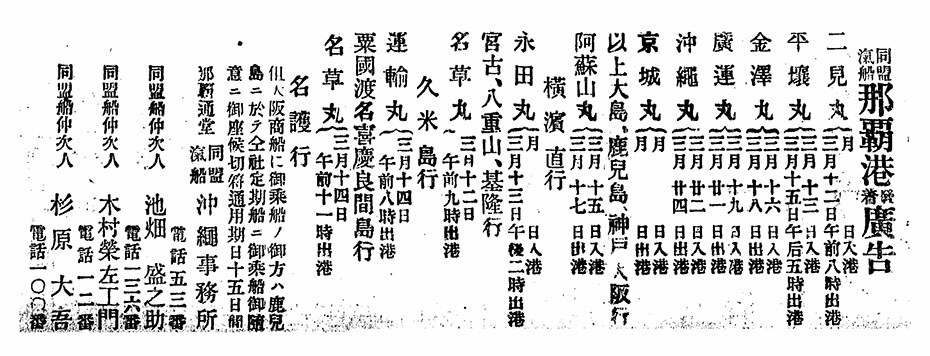 同盟汽船 那覇港 發着 廣告
二見丸 月 日入港 三月十二日午前八時出港
平壤丸 三月十三日入港 三月十五日午后五時出港
金澤丸 三月十六日入港 三月十八日出港
廣運丸 三月十九日入港 三月廿一日出港
沖繩丸 三月廿二日入港 三月廿四日出港
京城丸 月 日入港 月 日出港
阿蘇山丸 三月十五日入港 三月十七日出港
以上大島、鹿兒島、神戸、大阪行
橫濱直行
永田丸 月 日入港 三月十三日午後二時出港
宮古、八重山、基隆行
名草丸 三月十二日 午前九時出港
久米島行
運輸丸 三月十四日 午前八時出港
粟國渡名喜慶良間島行
名草丸 三月十四日 午前十一時出港
名護行
但大阪商船に御乘船ノ御方ハ鹿兒
島ニ於テ仝社定期船ニ御乘船御隨
意ニ御座候切符通用期日十五日間
那覇通堂 同盟汽船 沖繩事務所
電話五三番
同盟船仲次人 池畑盛之助
電話一三六番
同盟船仲次人 木村榮左工門
電話一二番
同盟船仲次人 杉原大吾
電話一〇〇番